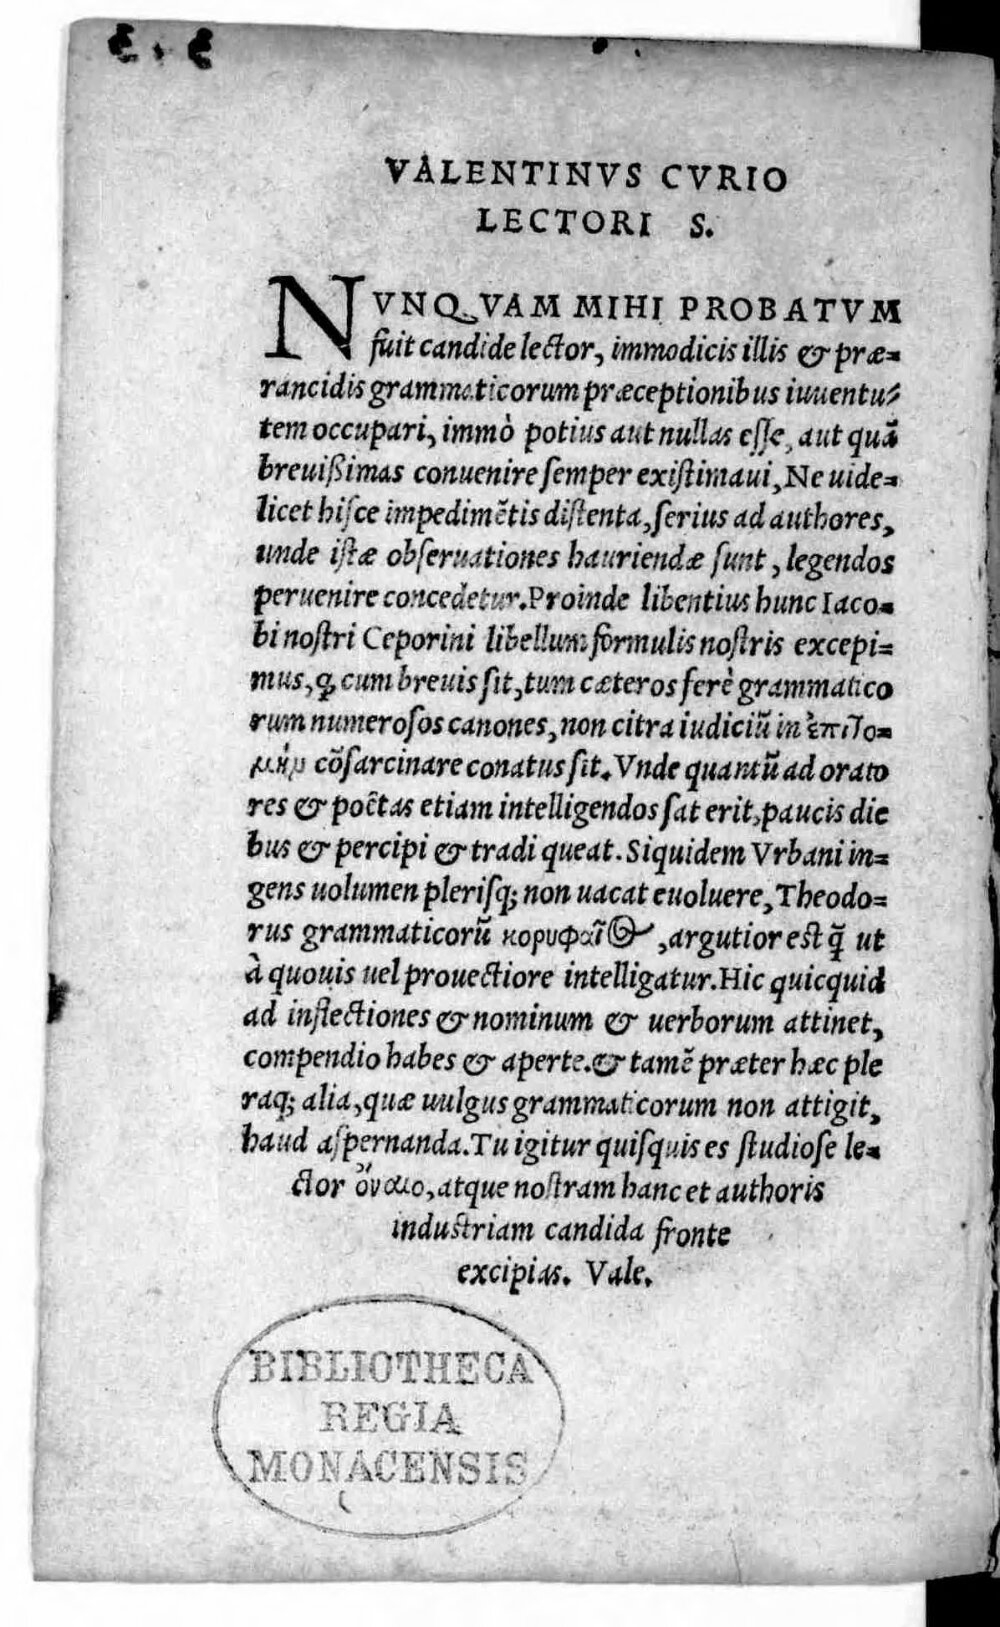 VALENTINVS CVRIO
LECTORI S.
NVNQVAM MIHI PROBATVM
fuit candide lector, immodicis illis & præ-
rancidis grammaticorum præceptionibus iuuentu-
tem occupari, immò potius aut nullas esse, aut quã
breuißimas conuenire semper existimaui, Ne uide-
licet hisce impedimẽtis distenta, serius ad authores,
unde istæ obseruationes hauriendæ sunt, legendos
peruenire concedetur. Proinde libentius hunc Iaco-
bi nostri Ceporini libellum formulis nostris excepi-
mus, ꝙ cum breuis sit, tum cæteros ferè grammatico
rum numerosos canones, non citra iudiciũ in ἐπιτο-
μὴν cõsarcinare conatus sit. Vnde quantũ ad orato
res & poëtas etiam intelligendos sat erit, paucis die
bus & percipi & tradi queat. Siquidem Vrbani in-
gens uolumen plerisq; non uacat euoluere, Theodo-
rus grammaticorũ κορυφαῖος, argutior est q̃ ut
à quouis uel prouectiore intelligatur. Hic quicquid
ad inflectiones & nominum & uerborum attinet,
compendio habes & aperte. & tamẽ præter hæc ple
raq; alia, quæ uulgus grammaticorum non attigit,
haud aspernanda. Tu igitur quisquis es studiose le-
ctor ὄναιο, atque nostram hanc et authoris
industriam candida fronte
excipias. Vale.
BIBLIOTHECA
REGIA
MONACENSIS